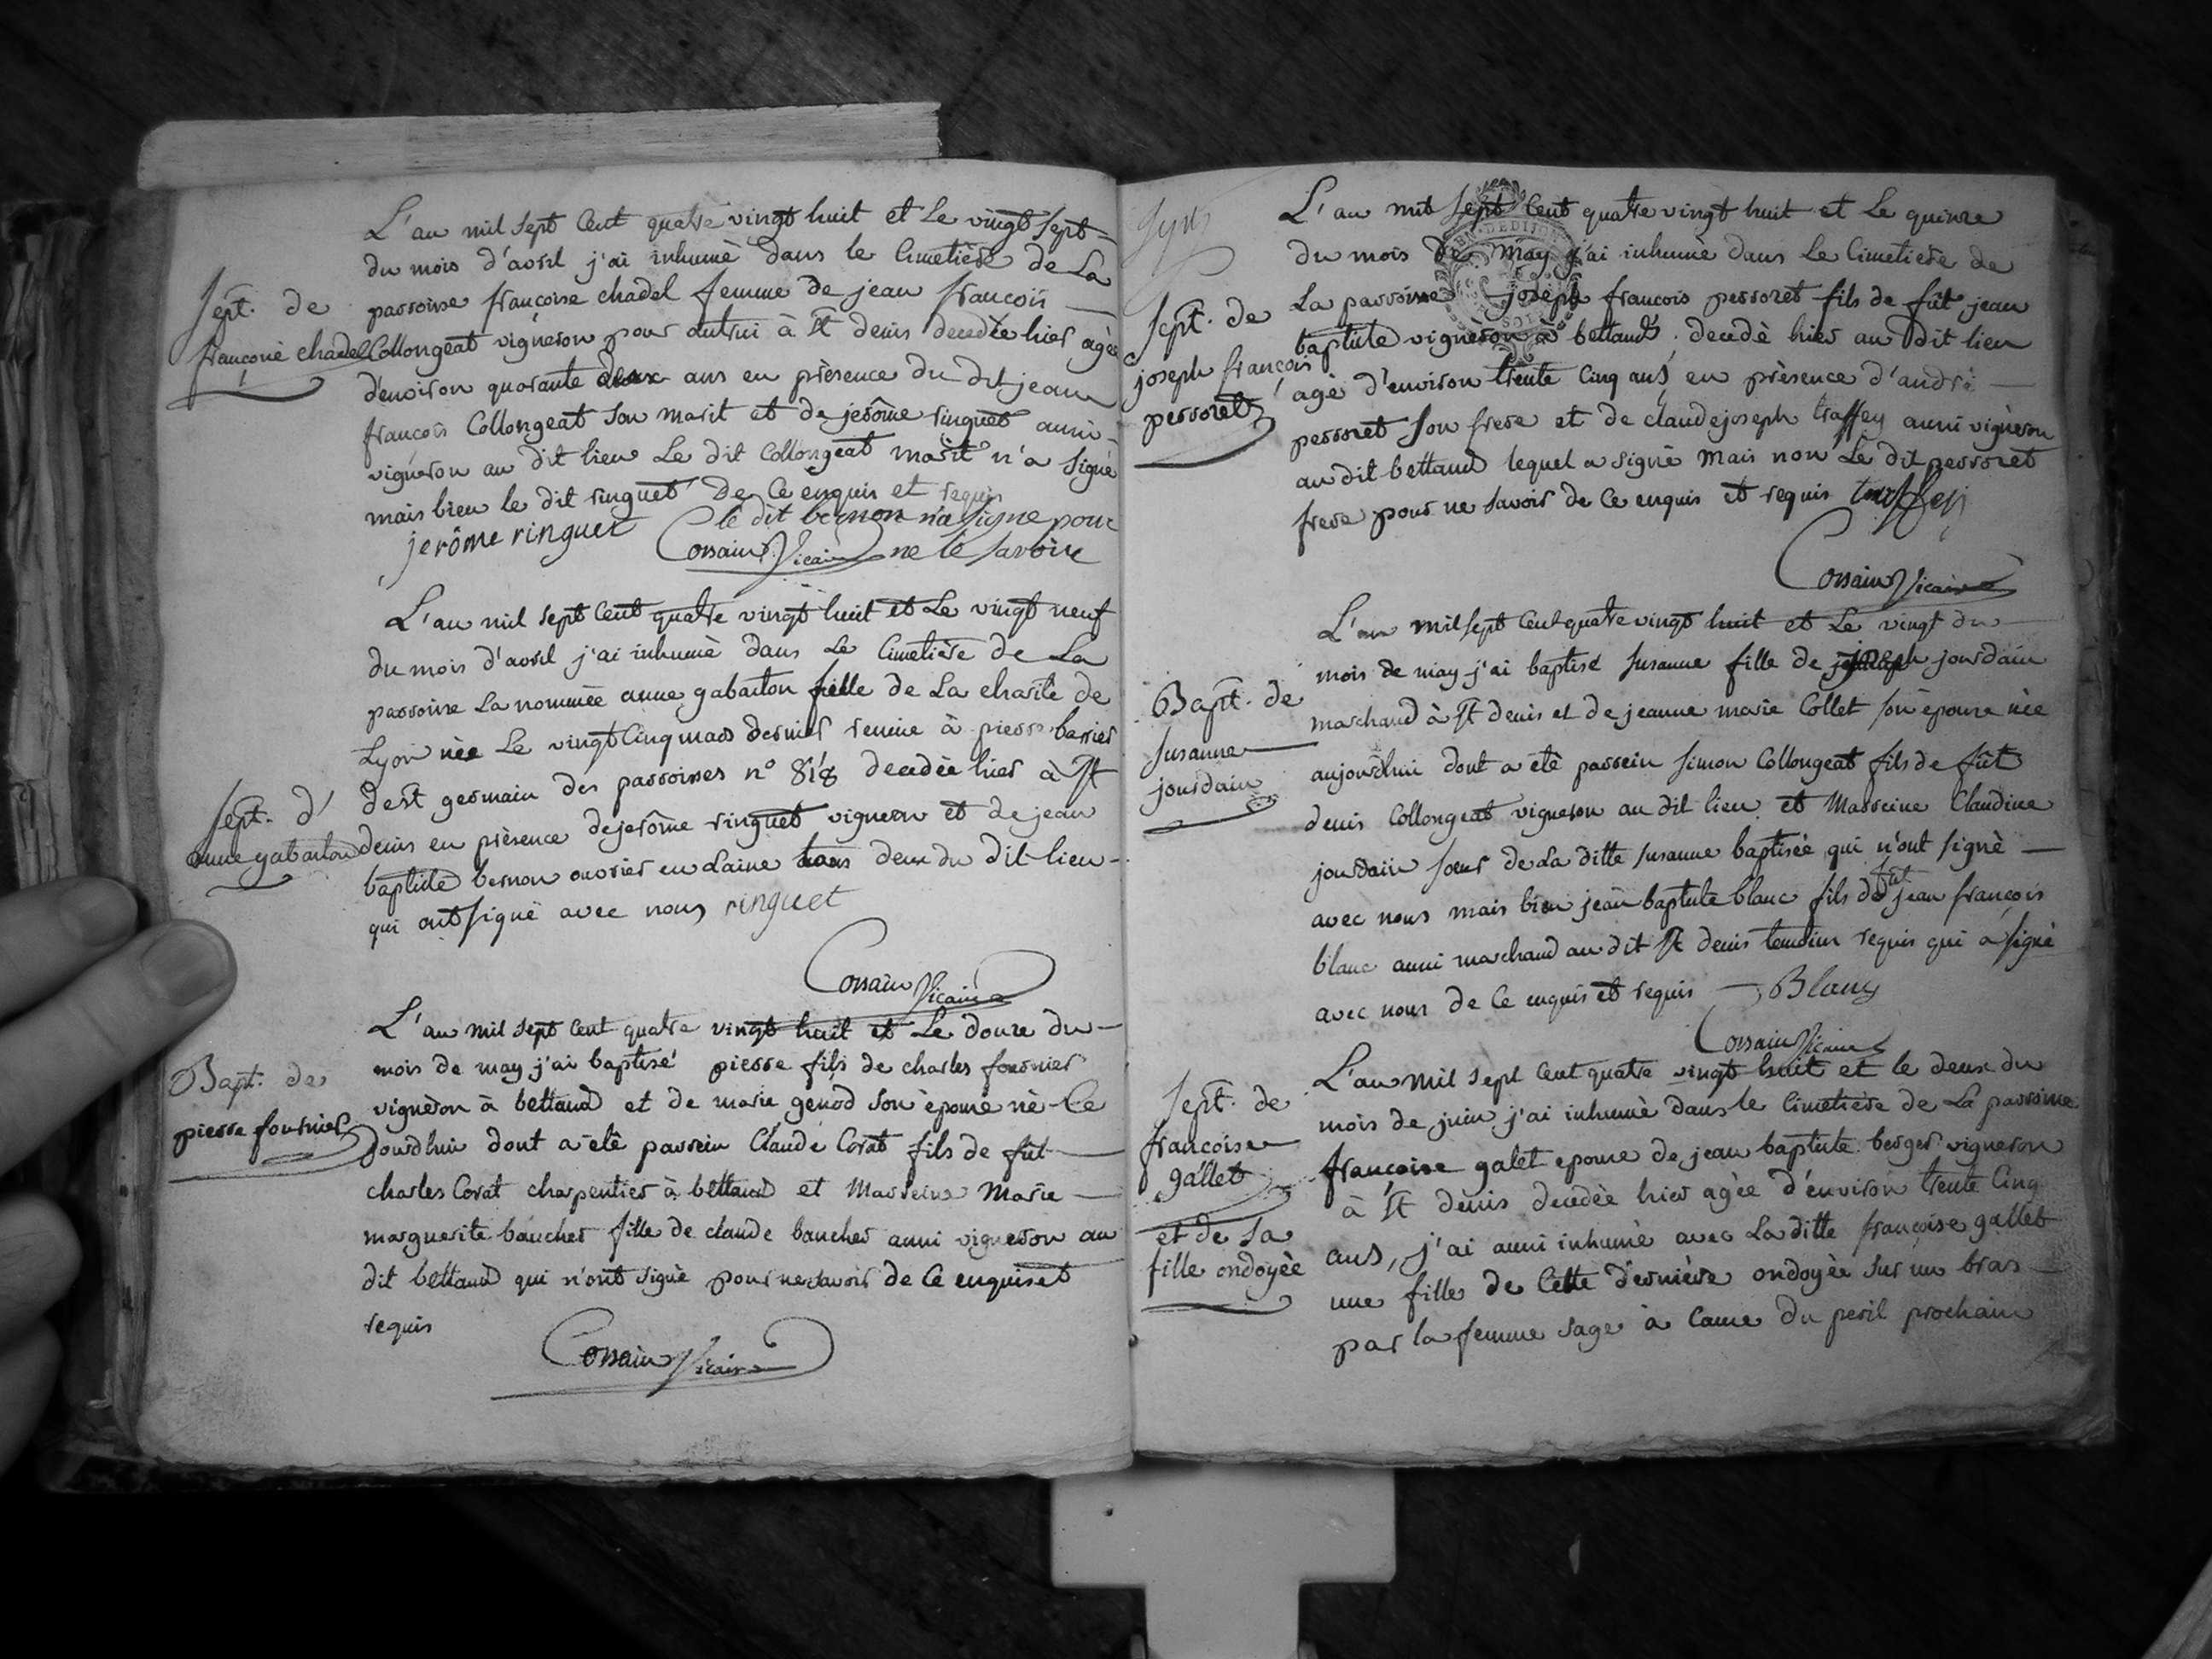 L'an mil sept Cent quatre vingt huit et Le vingt sept
du mois d'avril j'ai inhumè dans le Cimetière de La
Sept. de
françoise chadel
parroisse françoise chadel femme de jean françois
Collongeat vigneron pour autrui à St denis decedèe hier agèe
d'environ quarante deux ans en prèsence du dit jean
françois Collongeat son marit et de jerôme ringuet aussi
vigneron au dit lieu Le dit Collongeat marit n'a signè
mais bien le dit ringuet De Ce enquis et requis
jerôme ringuet
le dit bernon n'a signe pour
ne le savoire
Corsain Vicaire
L'an mil sept Cent quatre vingt huit et Le vingt neuf
du mois d'avril j'ai inhumè dans Le Cimetière de La
parroisse La nommèe anne gabarton fille de La charité de
Lyon nèe Le vingt Cinq mars dernier remise à pierre barrier
de st germain des parroisses n° 818 decedèe hier à St
Sept. d'
anne gabarton
denis en prèsence de jerôme ringuet vigneron et de jean
baptiste bernon ouvrier en Laine tous deux du dit lieu
qui ont signè avec nous ringuet
Corsain Vicaire
L'an mil sept Cent quatre vingt huit et Le douze du
Bapt. de
pierre fournier
mois de may j'ai baptisé pierre fils de charles fournier
vignèron à bettand et de marie genod son èpouse nè Ce
jourdhui dont a etê parrein Claude Corat fils de fût
charles Corat charpentier à bettand et Marreine Marie
marguerite baucher fille de claude baucher aussi vigneron au
dit bettand qui n'ont signè pour ne savoir de Ce enquis et
requis
Corsain Vicaire
L'an mil sept Cent quatre vingt huit et Le quinze
du mois de may j'ai inhumè dans Le Cimetière de
Sept. de
joseph françois
perroret
La parroisse joseph françois perroret fils de fût jean
baptiste vignèron à bettand decedè hier au Dit lieu
agè d'environ trente Cinq ans en prèsence d'andrè
perroret son frere et de claude joseph traffey aussi vignèron
au dit bettand lequel a signè Mais non Le dit perroret
frere pour ne savoir de Ce enquis et requis traffey
Corsain Vicaire
L'an mil sept Cent quatre vingt huit et Le vingt du
mois de may j'ai baptisé susanne fille de joseph jourdain
Bapt. de
susanne
jourdain
marchand à St denis et de jeanne marie Collet son èpouse nèe
aujourdhui dont a étè parrein simon Collongeat fils de fût
denis Collongeat vigneron au dit lieu et Marreine Claudine
jourdain sœur de La ditte susanne baptisèe qui n'ont signè
avec nous mais bien jean baptiste blanc fils de fût jean françois
blanc aussi marchand au dit St denis temoin requis qui a signè
avec nous de Ce enquis et requis Blanc
Corsain Vicaire
L'an mil sept Cent quatre vingt huit et le deux du
Sept. de
françoise
gallet
et de sa
fille ondoyèe
mois de juin j'ai inhumè dans le Cimetière de La parroisse
françoise galet epouse de jean baptiste berger vigneron
à St denis decedèe hier agèe d'environ trente Cinq
ans, j'ai aussi inhumè avec La ditte françoise gallet
une fille de Cette dernière ondoyèe sur un bras
par la femme sage à Cause du peril prochain